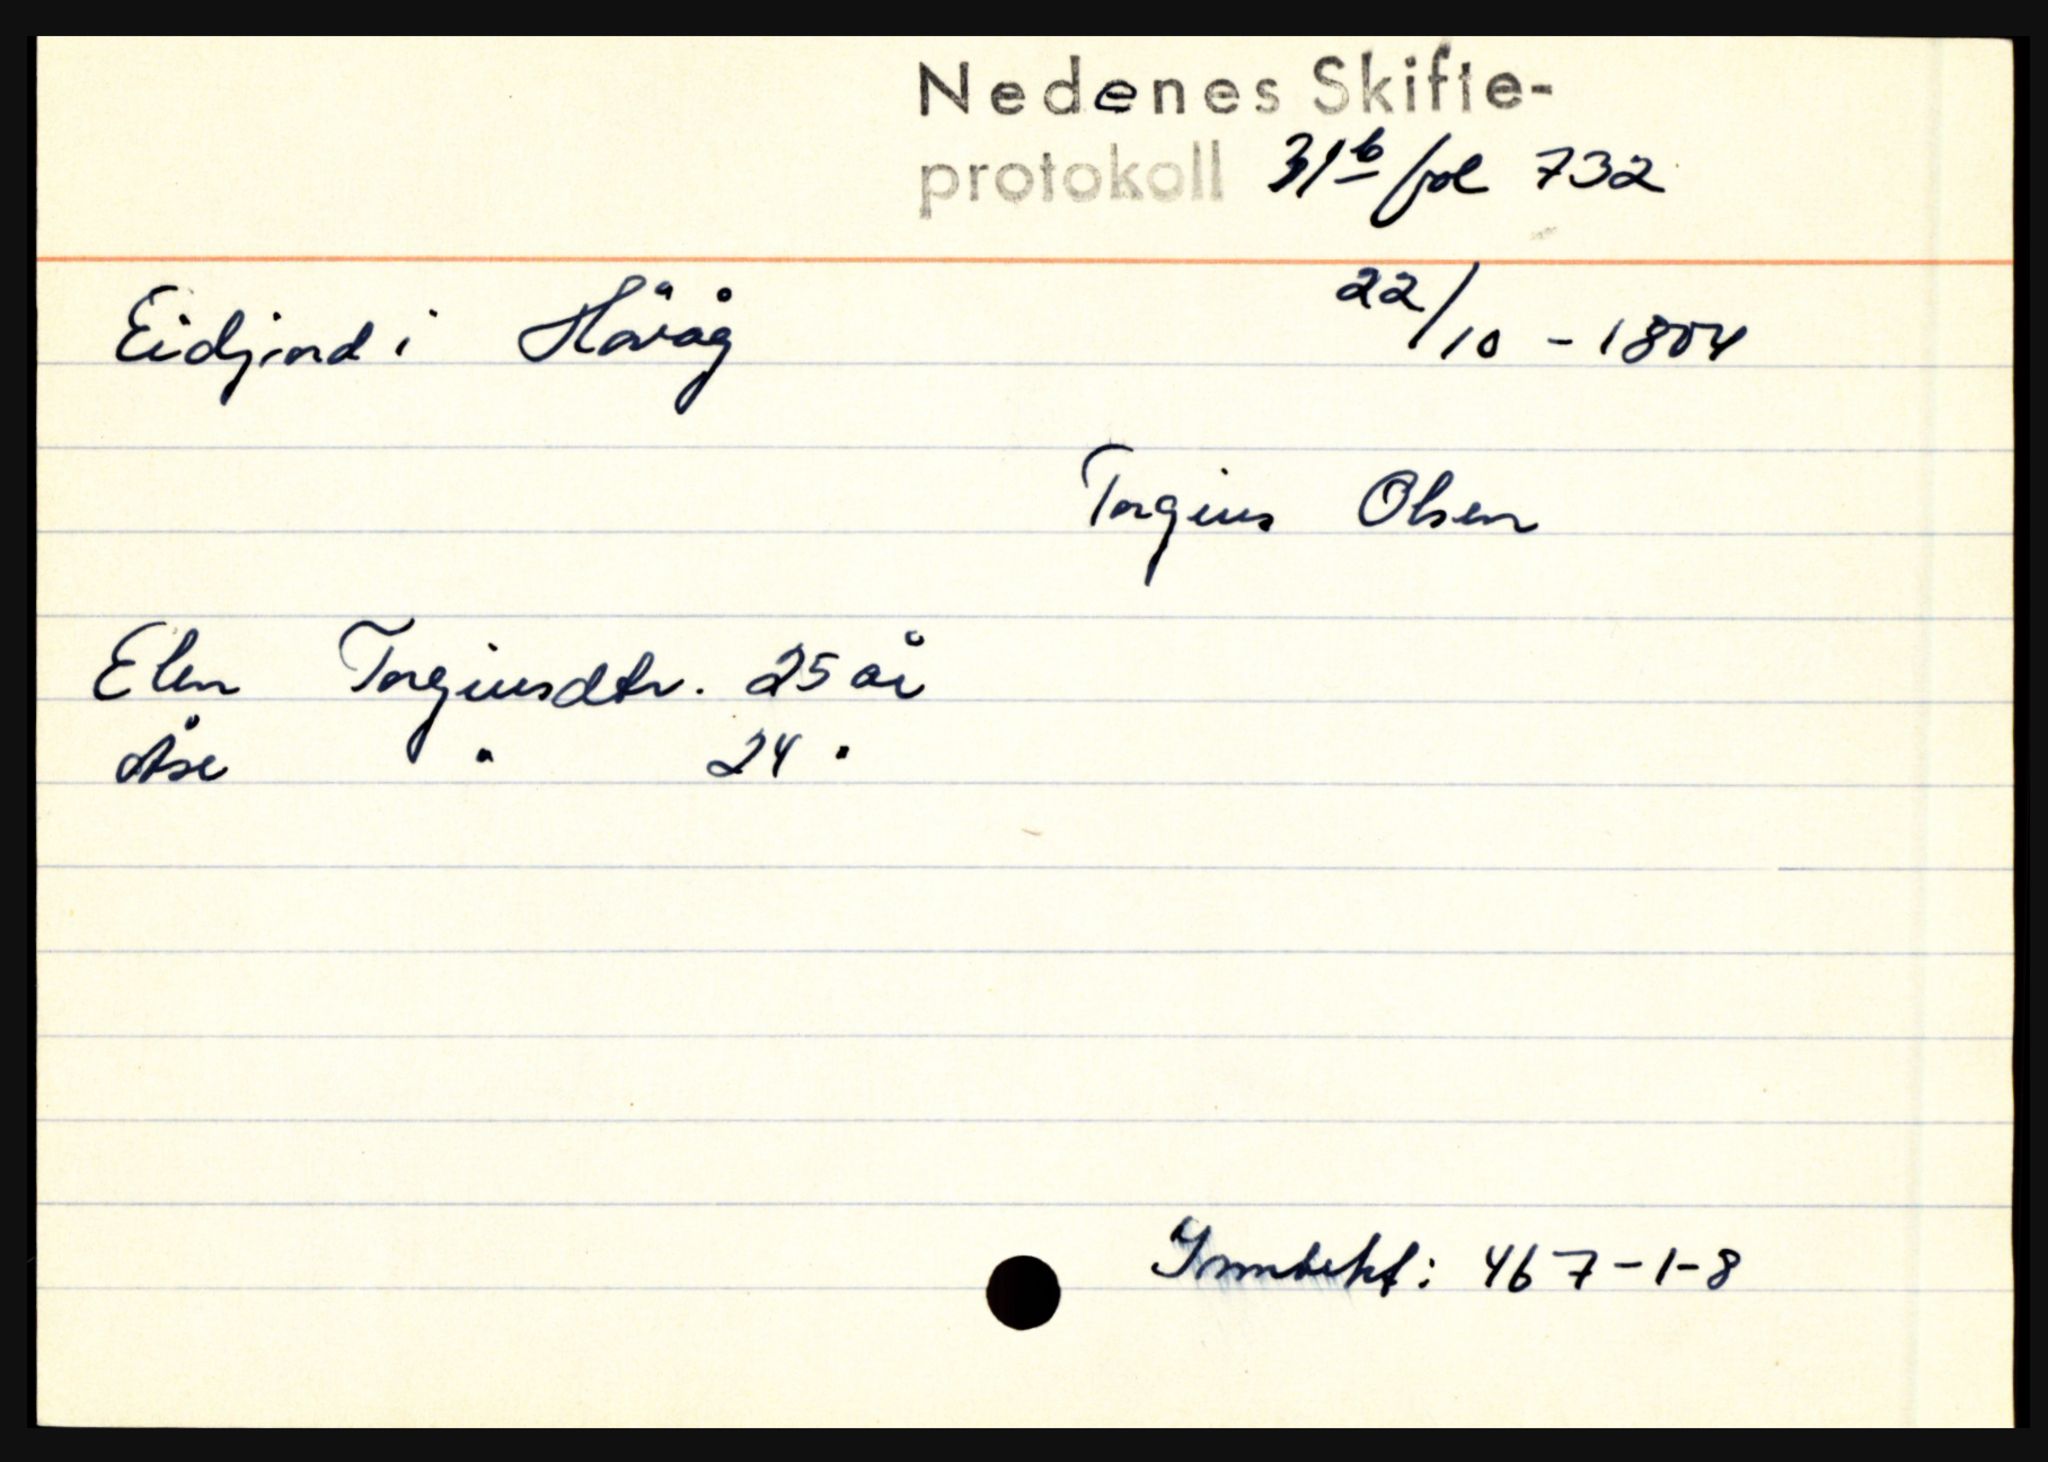 Nedenes Skifte-
protokoll 31b fol 732
Eidjord i Høvåg 22/10 - 1804
Torgius Olsen
Elen Torgiusdtr. 25 år
Åse " 24 "
: 467-1-8